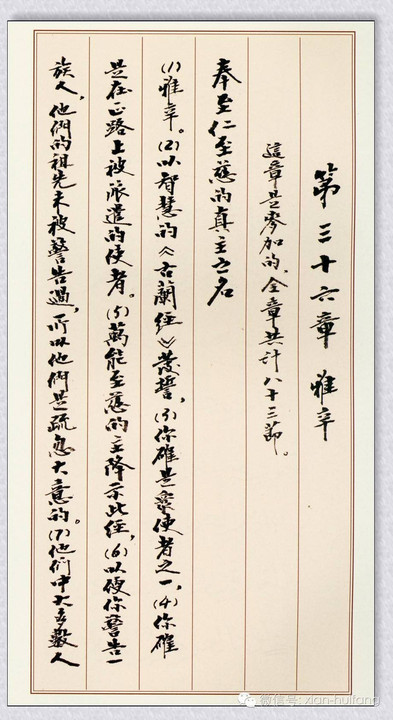 第三十六章 雅辛
這章是麥加的,全章共計八十三節。
奉至仁至慈的真主之名
(1)雅辛。(2)以智慧的《古蘭經》發誓,(3)你確是衆使者之一,(4)你確
是在正路上被派遣的使者。(5)萬能至慈的主降示此經,(6)以便你警告一
族人,他們的祖先未被警告過,所以他們是疏忽大意的。(7)他们中大多數人
微信号: xian-huifang